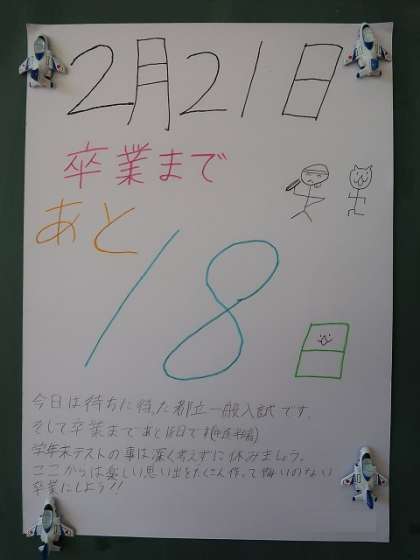 2月21日
卒業まで
あと
18日
今日は待ちに待った都立一般入試です。
そして卒業まであと18日です
学年末テストの事は深く考えずに休みましょう。
ここからは楽しい思い出をたくさん作って悔いのない
卒業にしよう!!